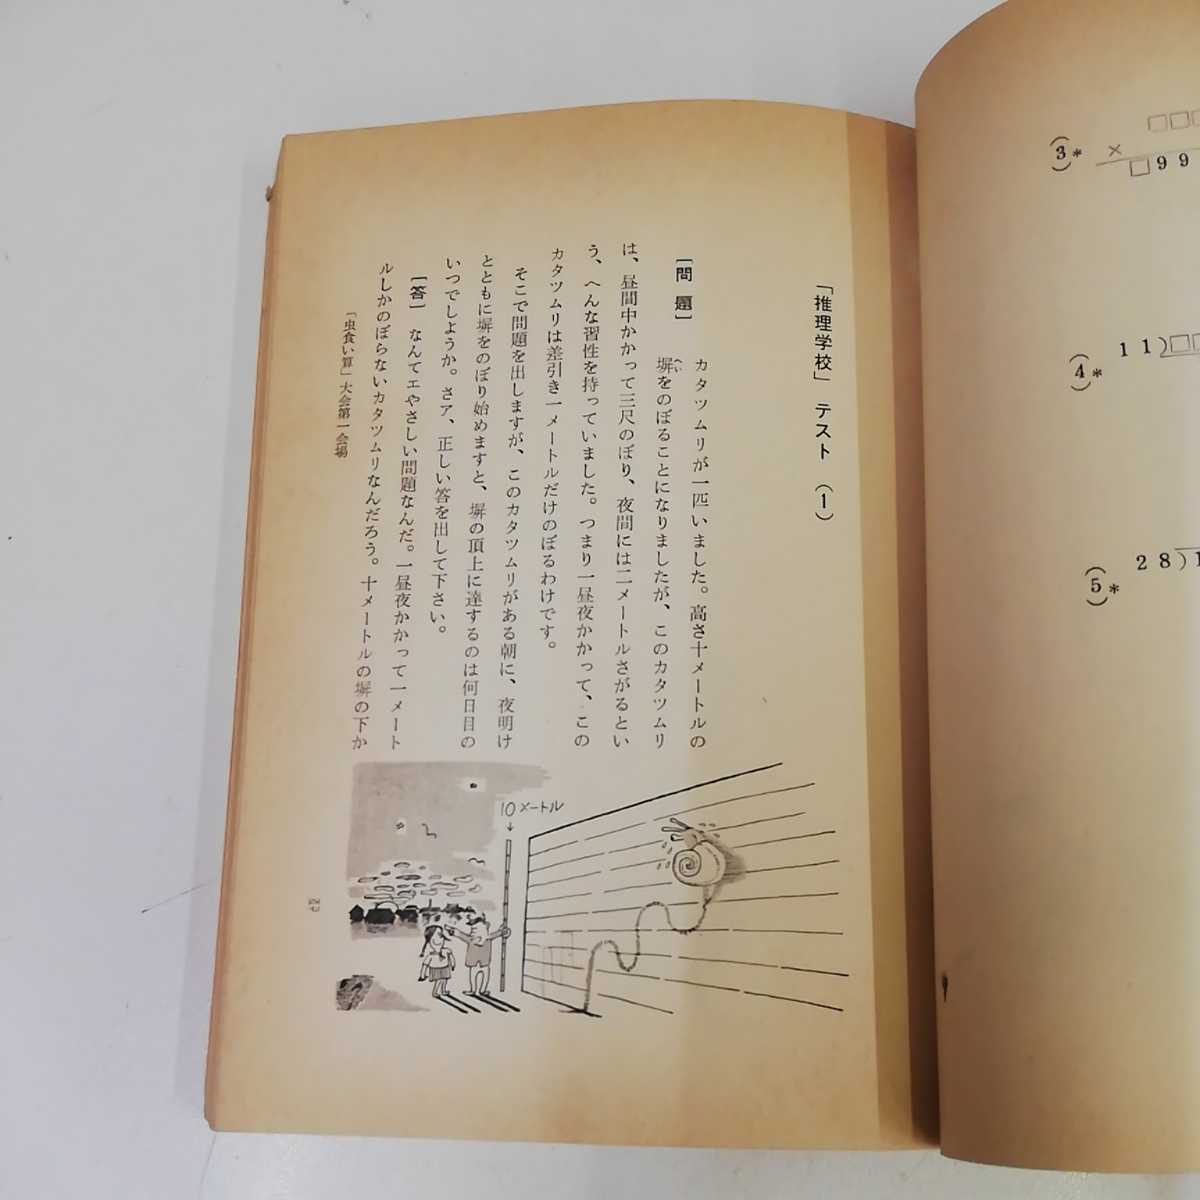 (3)*
□□□
×
□99
(4)*
11)□□
(5)*
28)1
「推理学校」テスト（1）
［問題］
カタツムリが一匹いました。高さ十メートルの
塀をのぼることになりましたが、このカタツムリ
へい
は、昼間中かかって三尺のぼり、夜間には二メートルさがるとい
う、へんな習性を持っていました。つまり一昼夜かかって、この
カタツムリは差引き一メートルだけのぼるわけです。
そこで問題を出しますが、このカタツムリがある朝に、夜明け
とともに塀をのぼり始めますと、塀の頂上に達するのは何日目の
いつでしようか。さア、正しい答を出して下さい。
［答］　なんてエやさしい問題なんだ。一昼夜かかって一メート
ルしかのぼらないカタツムリなんだろう。十メートルの塀の下か
「虫食い算」大会第一会場
10メートル
四七